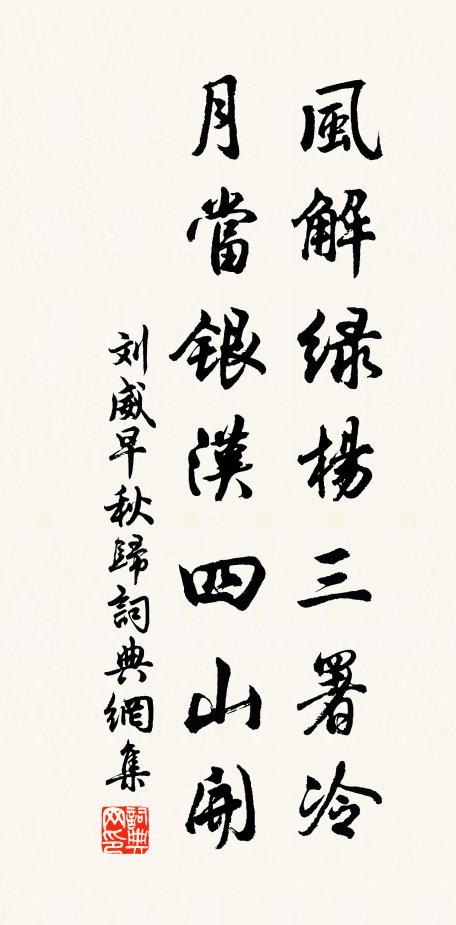 風解綠楊三署冷
月當銀漢四山開
刘威早秋歸詞典網集
詞典网印